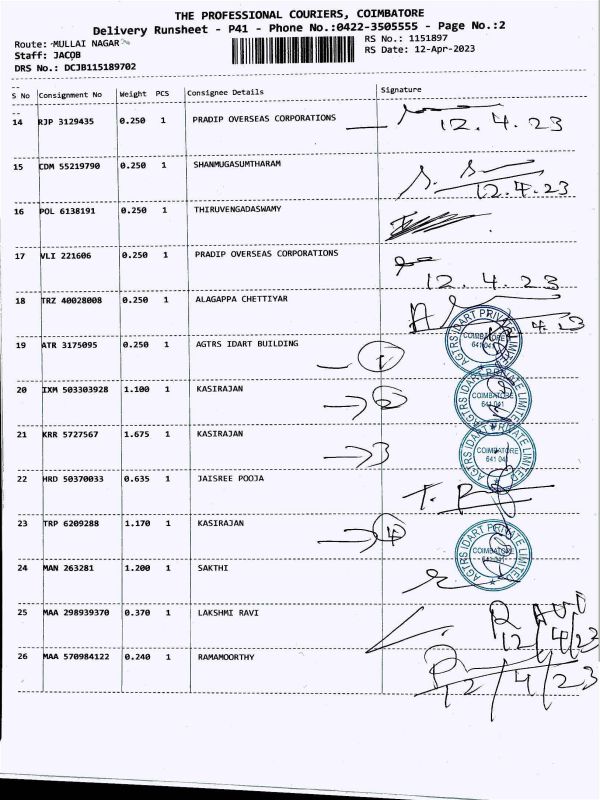 THE PROFESSIONAL COURIERS, COIMBATORE
Delivery Runsheet - P41 - Phone No.:0422-3505555 - Page No.:2
Route: MULLAI NAGAR
RS No.: 1151897
Staff: JACOB
RS Date: 12-Apr-2023
DRS No.: DCJB115189702
S No Consignment No Weight PCS Consignee Details Signature
14 RJP 3129435 0.250 1 PRADIP OVERSEAS CORPORATIONS
12.4.23
15 CDM 55219790 0.250 1 SHANMUGASUMTHARAM
12.4.23
16 POL 6138191 0.250 1 THIRUVENGADASWAMY
17 VLI 221606 0.250 1 PRADIP OVERSEAS CORPORATIONS
12.4.23
18 TRZ 40028008 0.250 1 ALAGAPPA CHETTIYAR
4.23
19 ATR 3175095 0.250 1 AGTRS IDART BUILDING
1
AGTRS IDART PRIVATE LIMITED
COIMBATORE
641 041
20 IXM 503303928 1.100 1 KASIRAJAN
2
AGTRS IDART PRIVATE LIMITED
COIMBATORE
641 041
21 KRR 5727567 1.675 1 KASIRAJAN
3
AGTRS IDART PRIVATE LIMITED
COIMBATORE
641 041
22 HRD 50370033 0.635 1 JAISREE POOJA
23 TRP 6209288 1.170 1 KASIRAJAN
4
AGTRS IDART PRIVATE LIMITED
COIMBATORE
24 MAN 263281 1.200 1 SAKTHI
25 MAA 298939370 0.370 1 LAKSHMI RAVI
RAVI
12/4/23
26 MAA 570984122 0.240 1 RAMAMOORTHY
12/4/23